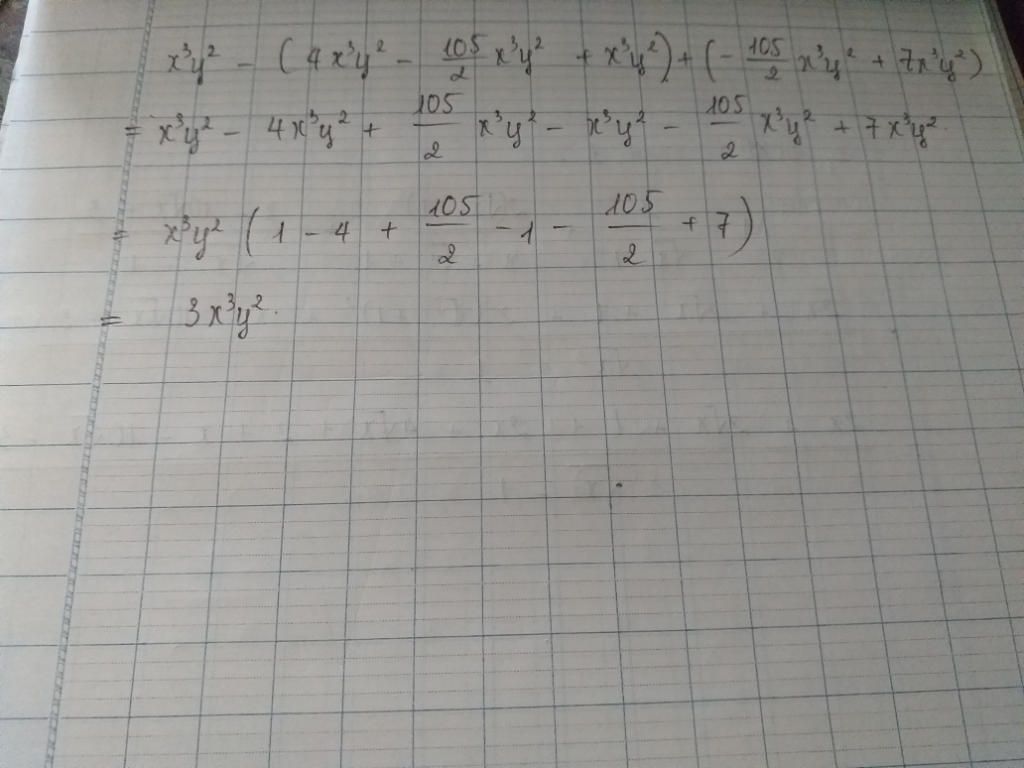 x³y² - (4x³y² - 105/2 x³y² + x³y²) + (- 105/2 x³y² + 7x³y²)
= x³y² - 4x³y² + 105/2 x³y² - x³y² - 105/2 x³y² + 7x³y².
= x³y² (1 - 4 + 105/2 - 1 - 105/2 + 7)
= 3x³y².